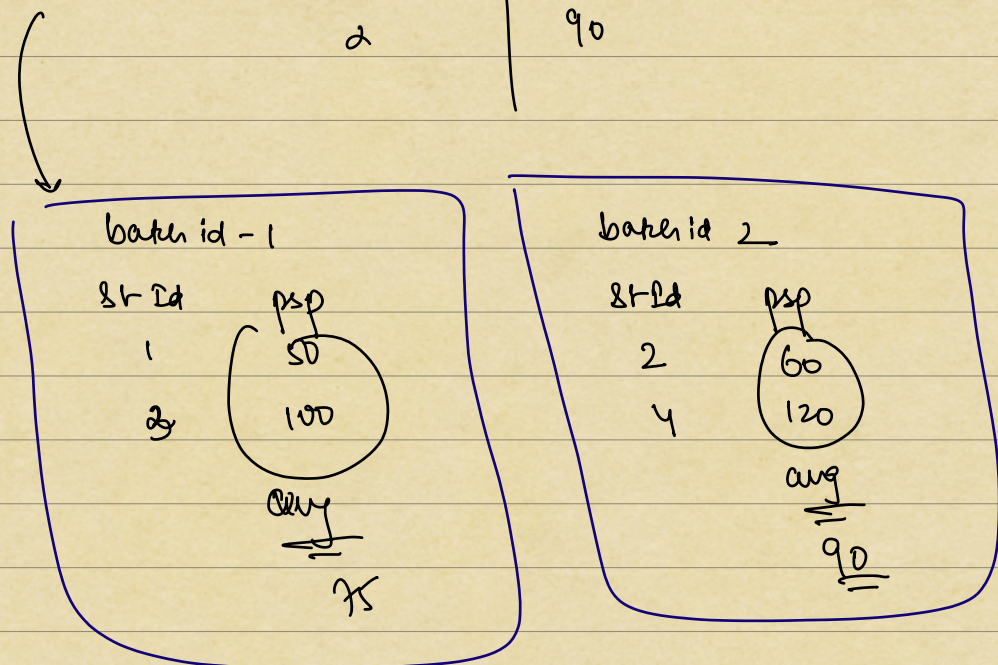 2 90
batch id - 1
St Id psp
1 50
3 100
avg
75
batch id 2
St Id psp
2 60
4 120
avg
90